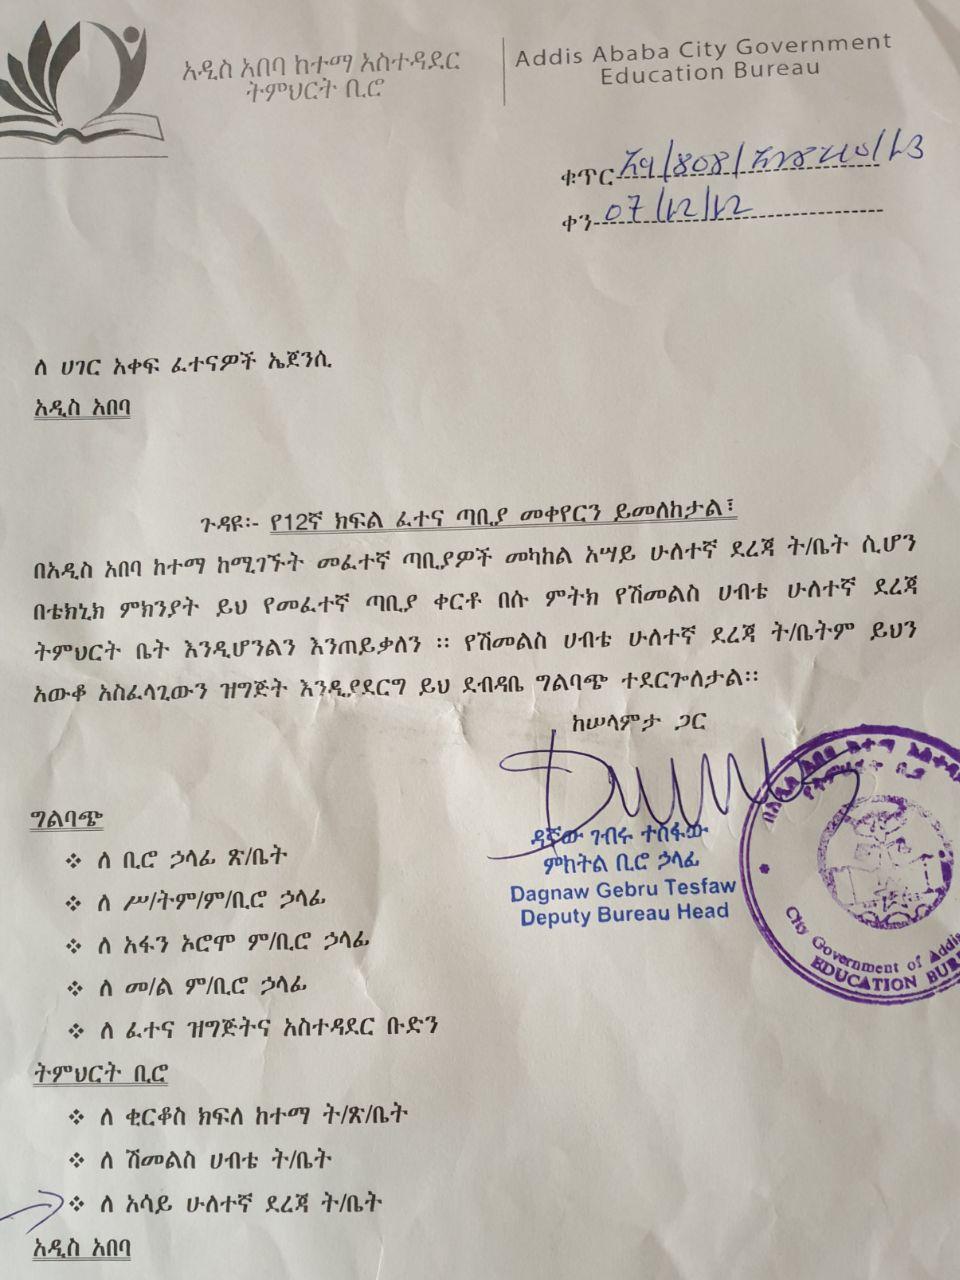 አዲስ አበባ ከተማ አስተዳደር
ትምህርት ቢሮ
Addis Ababa City Government
Education Bureau
ቁጥር
ቀን 07/12/12
ለ ሀገር አቀፍ ፈተናዎች ኤጀንሲ
አዲስ አበባ
ጉዳዩ፡- የ12ኛ ክፍል ፈተና ጣቢያ መቀየርን ይመለከታል፤
በአዲስ አበባ ከተማ ከሚገኙት መፈተኛ ጣቢያዎች መካከል አሣይ ሁለተኛ ደረጃ ት/ቤት ሲሆን
በቴክኒክ ምክንያት ይህ የመፈተኛ ጣቢያ ቀርቶ በሱ ምትክ የሽመልስ ሀብቴ ሁለተኛ ደረጃ
ትምህርት ቤት እንዲሆንልን እንጠይቃለን ፡፡ የሽመልስ ሀብቴ ሁለተኛ ደረጃ ት/ቤትም ይህን
አውቆ አስፈላጊውን ዝግጅት እንዲያደርግ ይህ ደብዳቤ ግልባጭ ተደርጐለታል፡፡
ከሠላምታ ጋር
ዳኛው ገብሩ ተስፋው
ምክትል ቢሮ ኃላፊ
Dagnaw Gebru Tesfaw
Deputy Bureau Head
City Government of Addis
EDUCATION
ግልባጭ
❖ ለ ቢሮ ኃላፊ ጽ/ቤት
❖ ለ ሥ/ትም/ም/ቢሮ ኃላፊ
❖ ለ አፋን ኦሮሞ ም/ቢሮ ኃላፊ
❖ ለ መ/ል ም/ቢሮ ኃላፊ
❖ ለ ፈተና ዝግጅትና አስተዳደር ቡድን
ትምህርት ቢሮ
❖ ለ ቂርቆስ ክፍለ ከተማ ት/ጽ/ቤት
❖ ለ ሽመልስ ሀብቴ ት/ቤት
❖ ለ አሳይ ሁለተኛ ደረጃ ት/ቤት
አዲስ አበባ